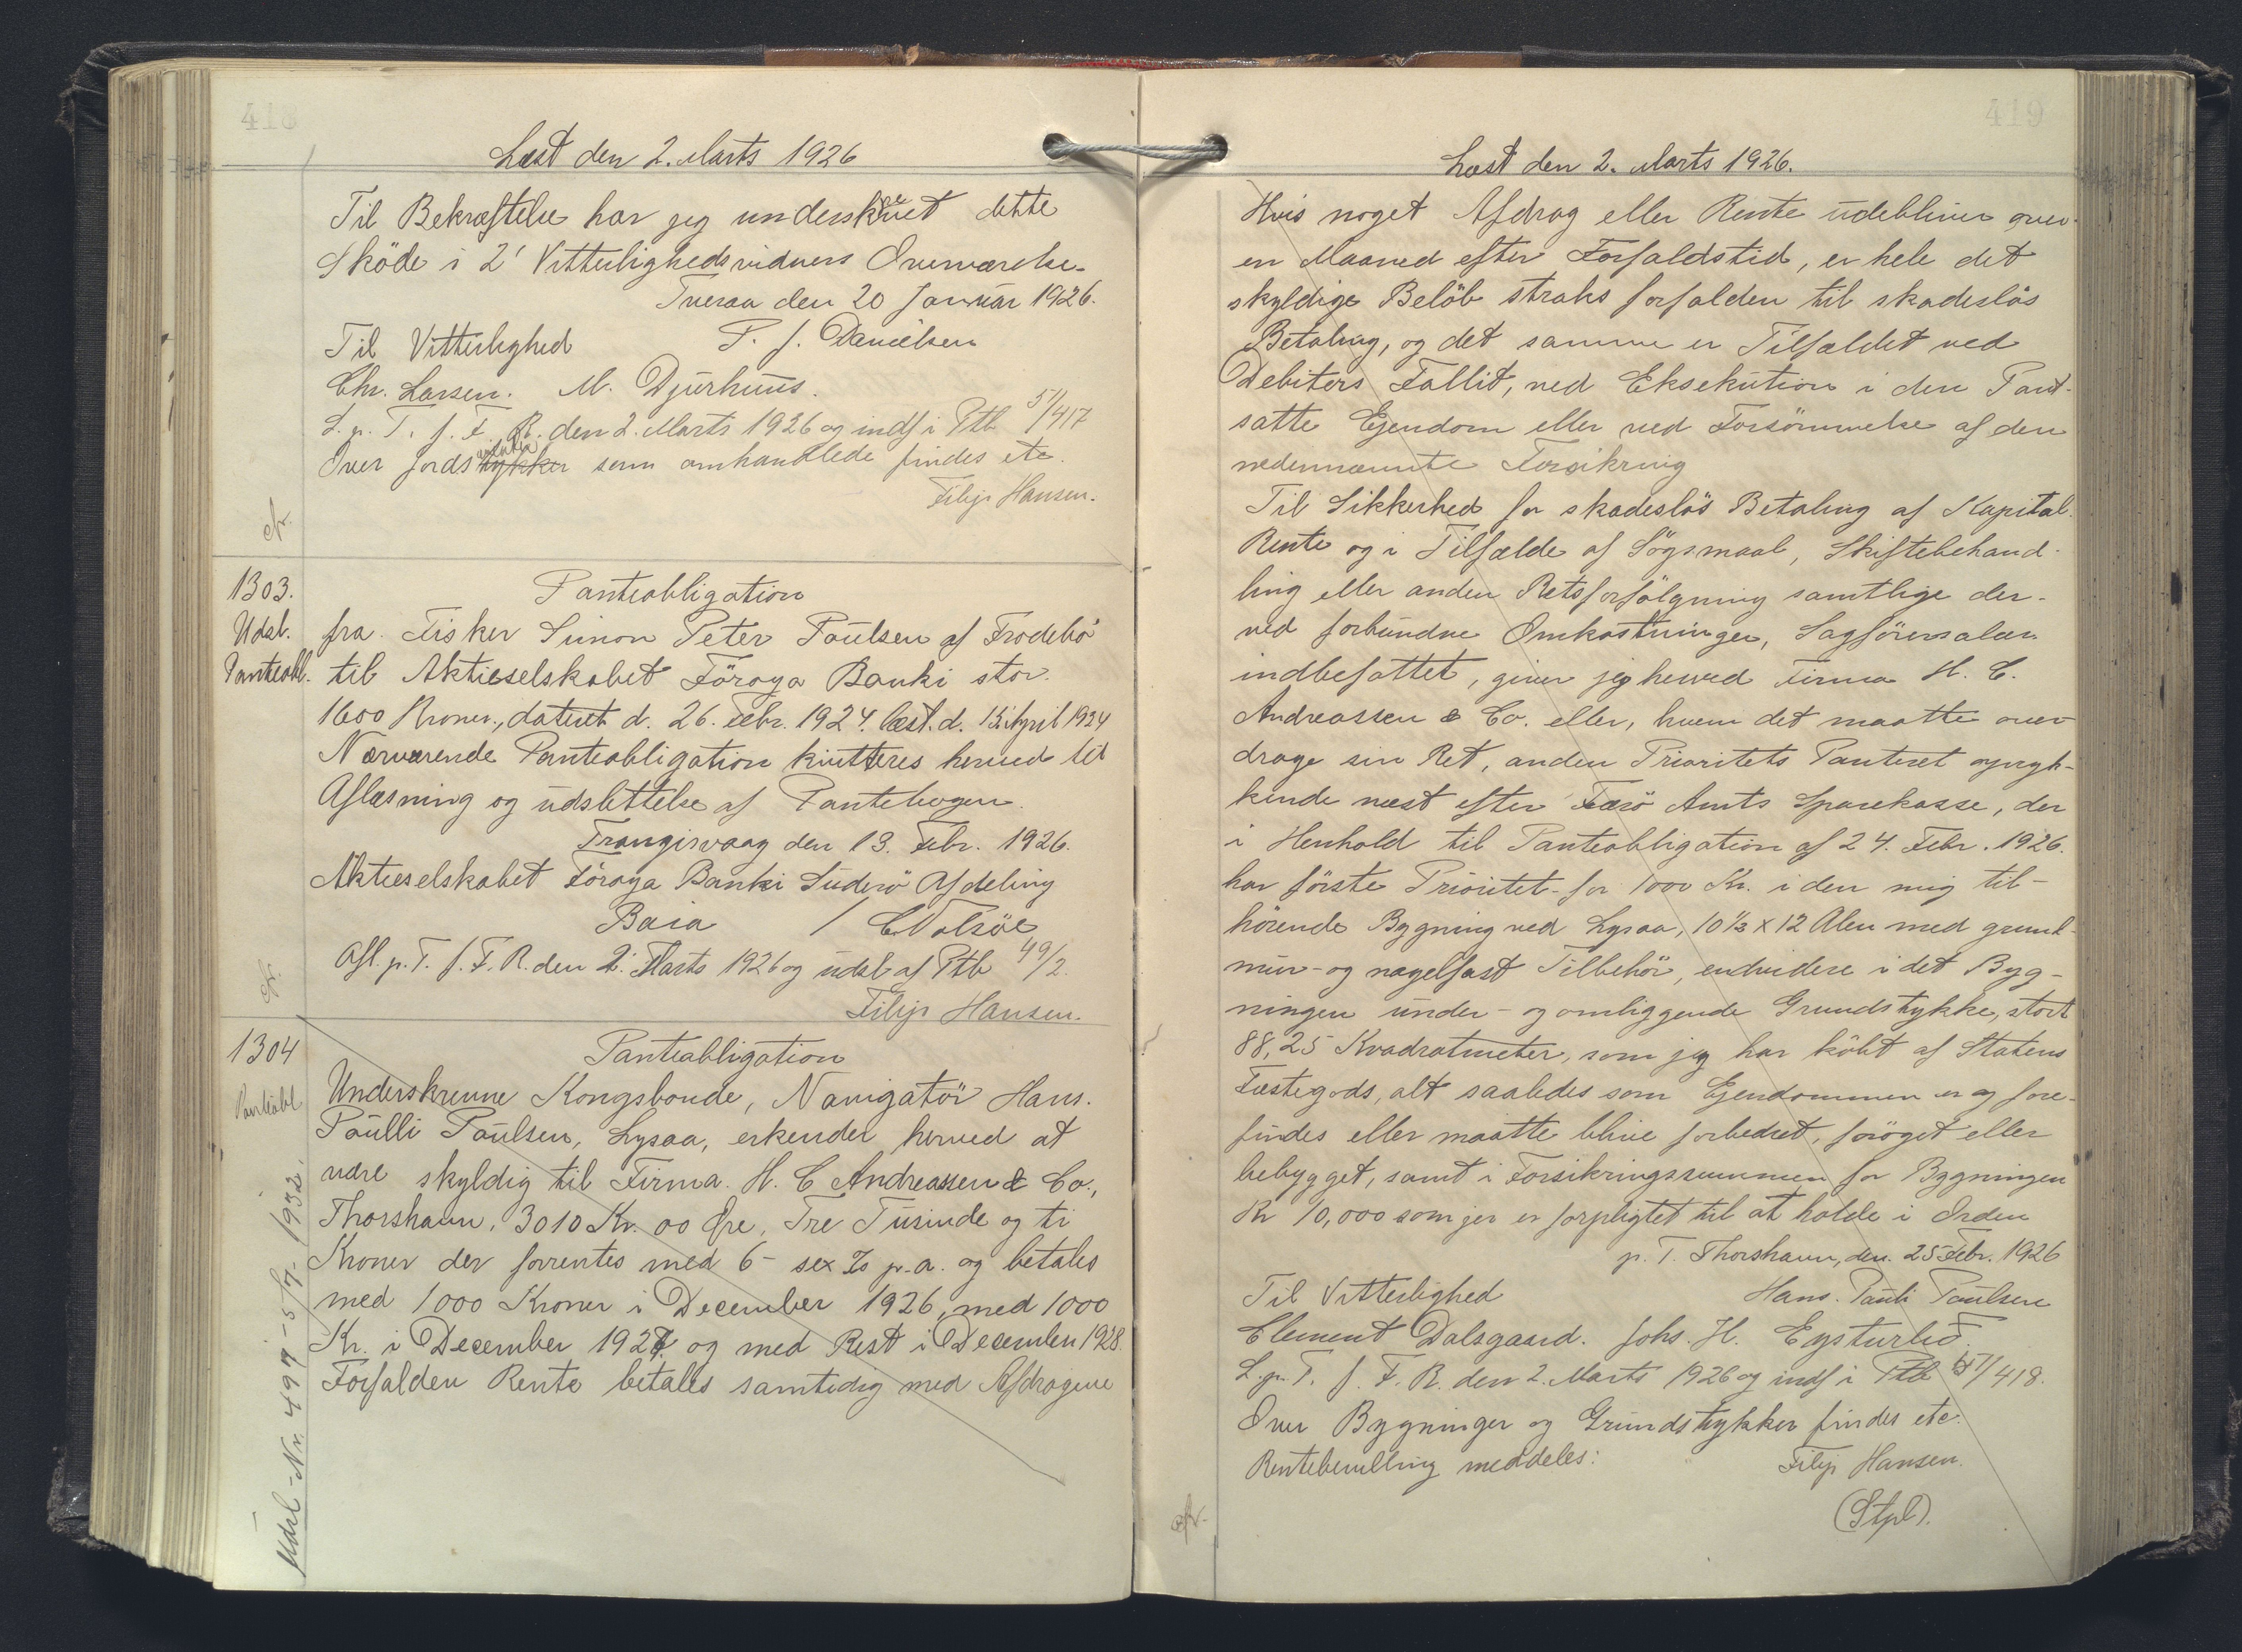 418
Læst den 2. Marts 1926
Til Bekræftelse har jeg underskrevet dette
Sköde i 2' Vitterlighedsvidners Overværelse.
Tveraa den 20 Januar 1926.
Til Vitterlighed P. J. Danielsen
Chr. Larsen. M. Djurhuus.
L. p. T. f. F. R. den 2. Marts 1926 og indf i Ptb 51/417
Over Jordstykker som omhandlede findes etc.
Filip Hansen.
1303. Panteobligation
Udsl. fra Fisker Simon Peter Poulsen af Frodebö
Panteobl. til Aktieselskabet Föroya Banki stor
1600 Kroner, dateret d. 26. Febr. 1924. læst. d. 15. April 1924
Nærværende Panteobligation kvitteres herved til
Aflæsning og udslettelse af Pantebogen.
Trangisvaag den 13. Febr. 1926.
Aktieselskabet Föroya Banki Suderö Afdeling
Baia / C. Nolsöe
Afl. p. T. f. F. R. den 2' Marts 1926 og udsl af Ptb 49/2.
Filip Hansen.
1304 Panteobligation
Panteobl Underskrevne Kongsbonde, Navigatör Hans.
Poulli Poulsen, Lysaa, erkender herved at
være skyldig til Firma H. C Andreassen & Co.,
Thorshavn, 3010 Kr. 00 Øre, Tre Tusinde og ti
Kroner der forrentes med 6 - sex % p.a. og betales
med 1000 Kroner i December 1926, med 1000
Kr. i December 1927. og med Rest i December 1928.
Forfalden Rente betales samtidig med Afdragene
Udsl - Nr. 497 - 5/7 - 1932.
419
Læst den 2. Marts 1926.
Hvis noget Afdrag eller Rente udebliver over
en Maaned efter Forfaldstid, er hele det
skyldige Belöb straks forfalden til skadeslös
Betaling, og det samme er Tilfældet ved
Debitors Fallit, ved Eksekution i den Pant-
satte Ejendom eller ved Forsömmelse af den
nedennævnte Forsikring
Til Sikkerhed for skadeslös Betaling af Kapital.
Rente og i Tilfælde af Sögsmaal, Skiftebehand-
ling eller anden Retsforfölgning samtlige der-
ved forbundne Omkostninger, Sagförersalær
indbefattet, giver jeg herved Firma H. C.
Andreassen & Co. eller, hvem det maatte over-
drage sin Ret, anden Prioritets Panteret opryk-
kende næst efter Færö Amts Sparekasse, der
i Henhold til Panteobligation af 24. Febr. 1926.
har förste Prioritet for 1000 Kr. i den mig til-
hörende Bygning ved Lysaa, 10 1/3 x 12 Alen med grund-
mur- og nagelfast Tilbehör, endvidere i det Byg-
ningen under- og omliggende Grundstykke, stort
88,25 Kvadratmeter, som jeg har köbt af Statens
Fæstegods, alt saaledes som Ejendommen er og fore-
findes eller maatte blive forbedret, foröget eller
bebygget, samt i Forsikringssummen for Bygningen
Kr 10,000 som jer er forpligtet til at holde i Orden
p. T. Thorshavn, den. 25 Febr. 1926
Til Vitterlighed Hans. Pauli Poulsen
Clement Dalsgaard. Johs. H. Eysturlid
L. p. T. f. F. R. den 2. Marts 1926 og indf i Ptb 51/418.
Over Bygninger og Grundstykker findes etc.
Rentebevilling meddeles: Filip Hansen.
(Stpl).